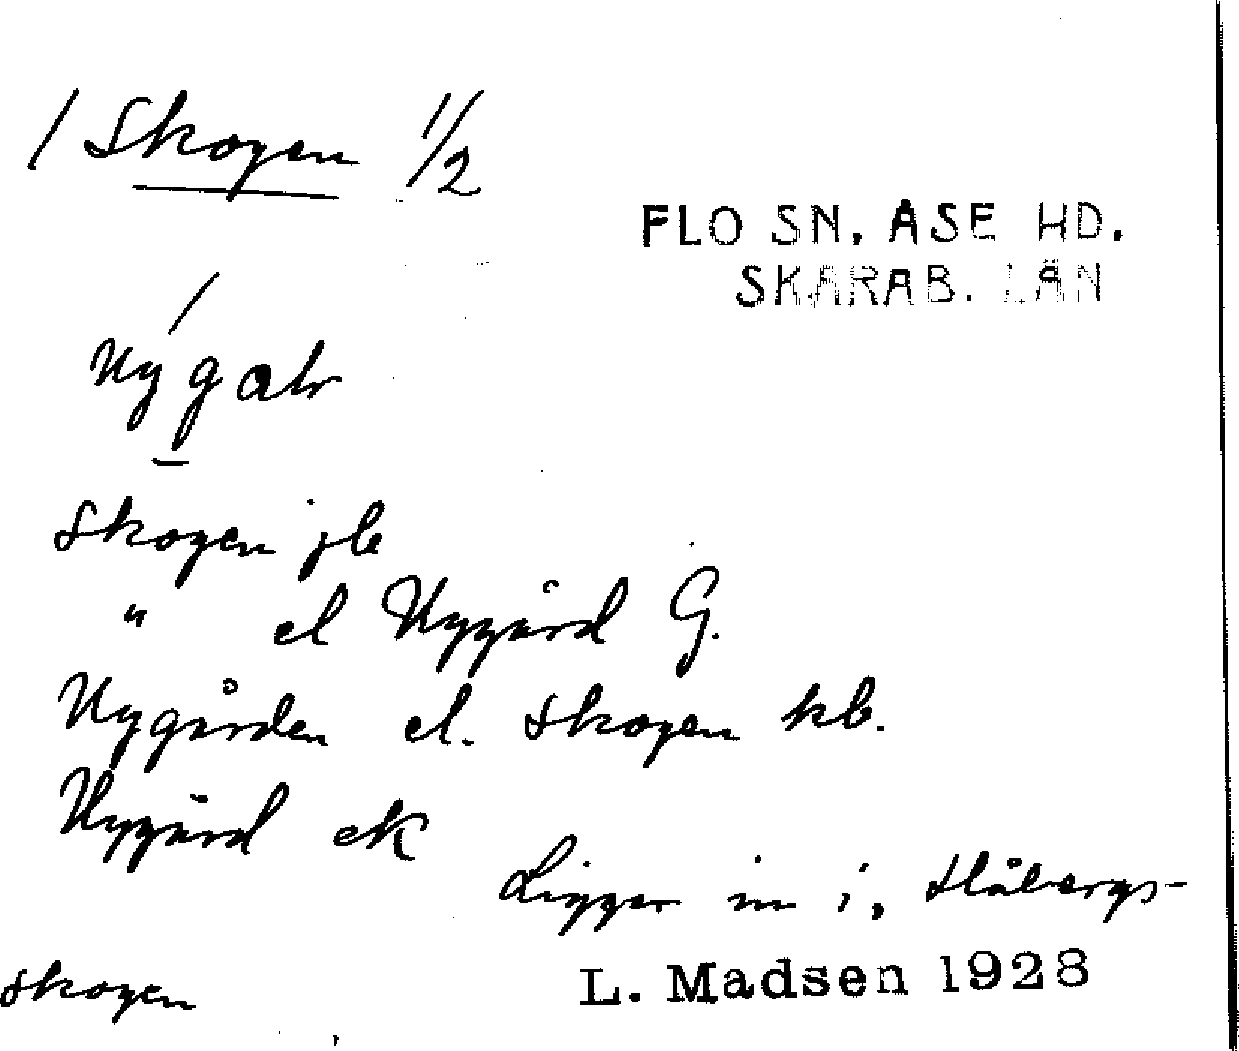 / Skogen 1/2
FLO SN. ÅSE HD.
SKARAB. LÄN
Nygalr
Skogen jb
" el Nygård G.
Nygården el. Skogen kb.
Nygård ek
Ligger in i, Hålbergs-
skogen
L. Madsen 1928